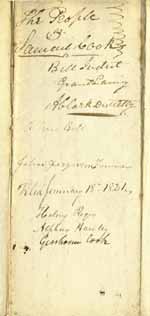 The People
vs
Samuel Cook
Bill Indict
Grand Larceny
A Clark Dist Atty
A True Bill
Foreman
Filed January 18th 1821
Henry
Arthur
Gershom Cook